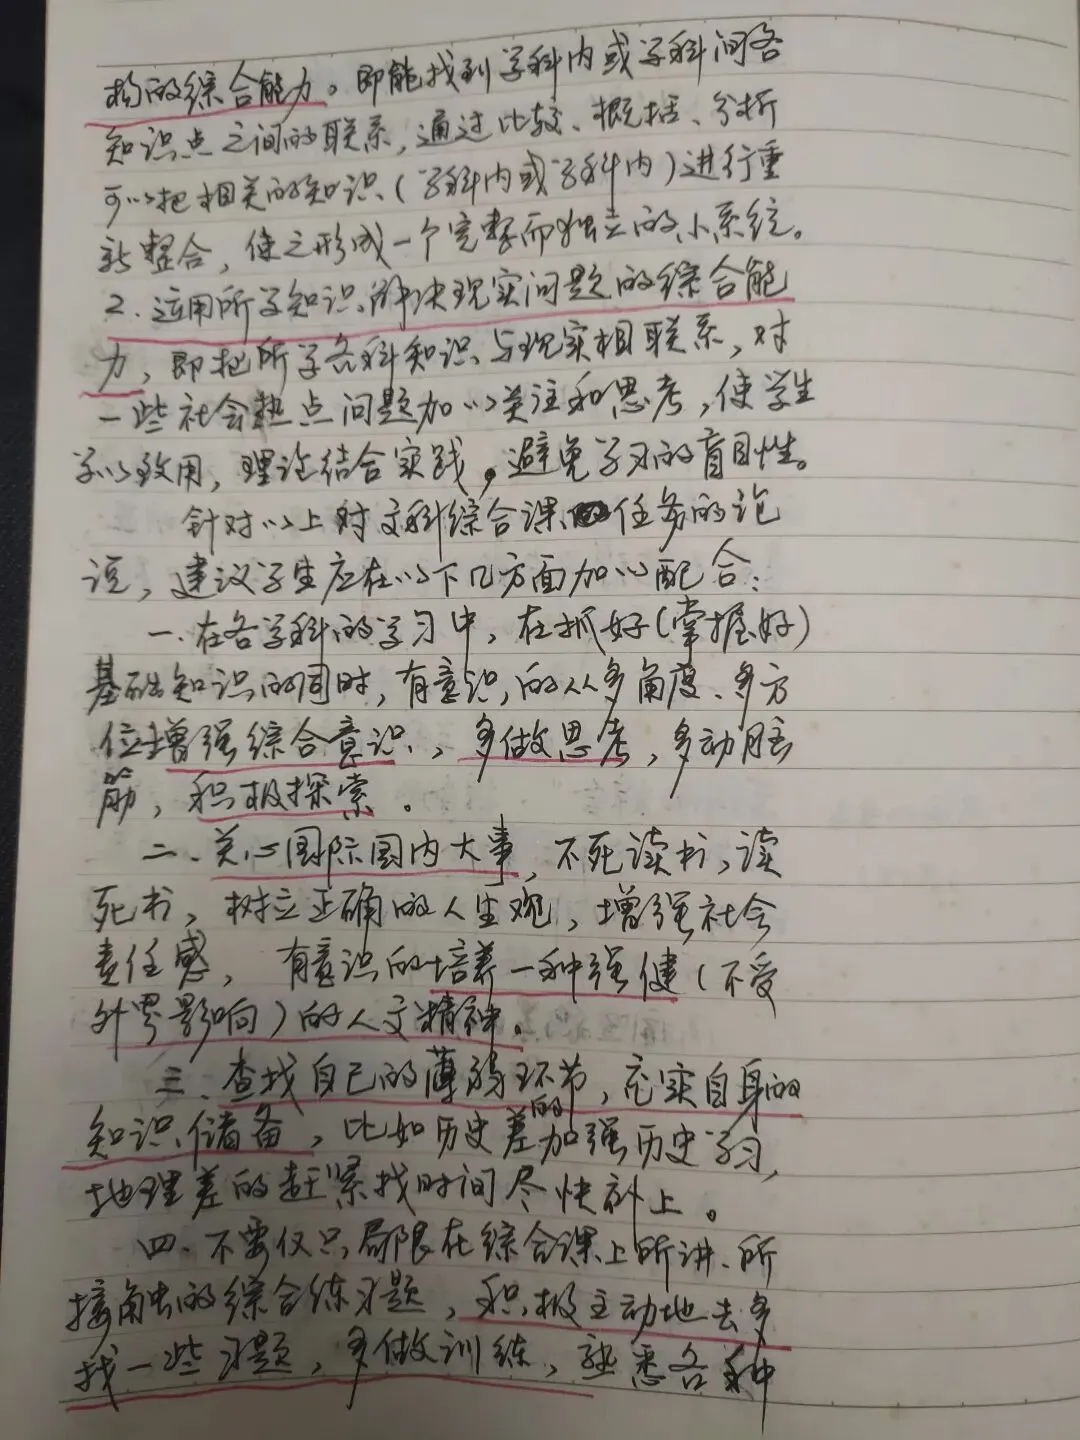 构的综合能力。即能找到学科内或学科间各
知识点之间的联系,通过比较、概括、分析
可以把相关的知识(学科内或学科内)进行重
新整合,使之形成一个完整而独立的小系统。
2.运用所学知识解决现实问题的综合能
力,即把所学各科知识与现实相联系,对
一些社会热点问题加以关注和思考,使学生
学以致用,理论结合实践。避免学习的盲目性。
针对以上对文科综合课任务的论
说,建议学生应在以下几方面加以配合:
一.在各学科的学习中,在抓好(掌握好)
基础知识的同时,有意识的从多角度、多方
位增强综合意识,多做思考,多动脑
筋,积极探索。
二、关心国际国内大事,不死读书,读
死书,树立正确的人生观,增强社会
责任感,有意识的培养一种强健(不受
外界影响)的人文精神。
三.查找自己的薄弱环节,充实自身的
知识储备,比如历史差的加强历史学习,
地理差的赶紧找时间尽快补上。
四、不要仅只局限在综合课上所讲、所
接触的综合练习题,积极主动地去多
找一些习题,多做训练,熟悉各种